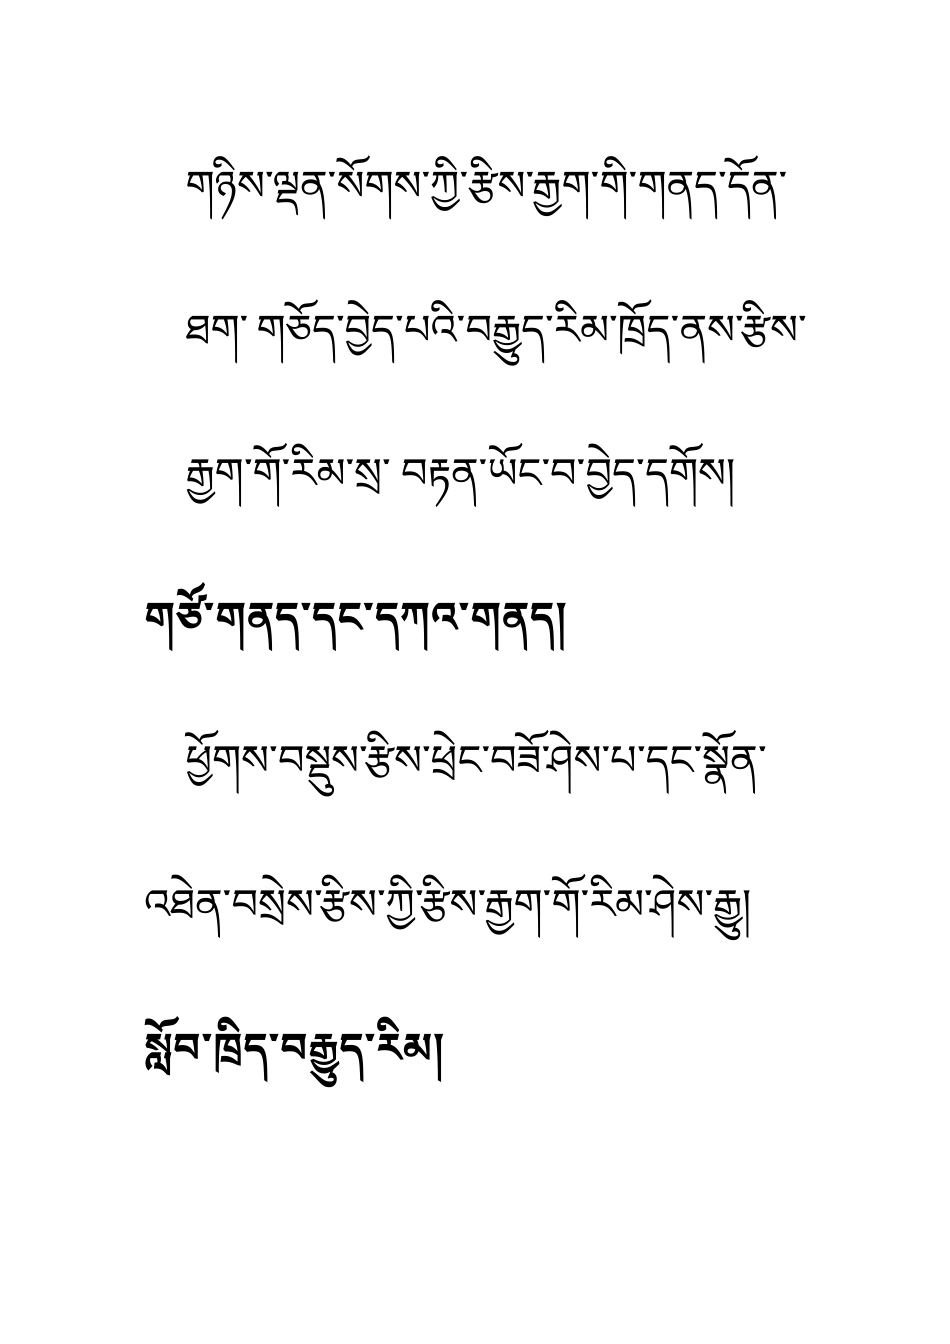 གཉིས་ལྡན་སོགས་ཀྱི་རྩིས་རྒྱག་གི་གནད་དོན་
ཐག་ གཅོད་བྱེད་པའི་བརྒྱུད་རིམ་ཁྲོད་ནས་རྩིས་
རྒྱག་གོ་རིམ་སྲ་ བརྟན་ཡོང་བ་བྱེད་དགོས།
གཙོ་གནད་དང་དཀའ་གནད།
ཕྱོགས་བསྡུས་རྩིས་ཕྲེང་བཟོ་ཤེས་པ་དང་སྣོན་
འཐེན་བསྲེས་རྩིས་ཀྱི་རྩིས་རྒྱག་གོ་རིམ་ཤེས་རྒྱུ།
སློབ་ཁྲིད་བརྒྱུད་རིམ།